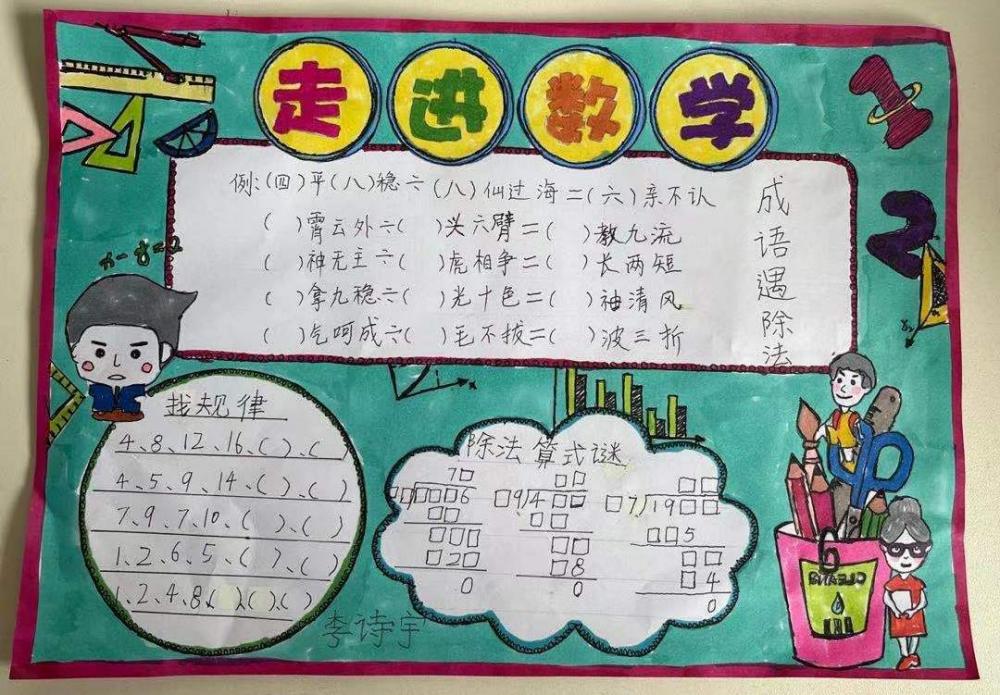 走进数学
例:(四)平(八)稳÷(八)仙过海=(六)亲不认
( )霄云外÷( )头六臂=( )教九流
( )神无主÷( )虎相争=( )长两短
( )拿九稳÷( )光十色=( )袖清风
( )气呵成÷( )毛不拔=( )波三折
成语遇除法
找规律
4、8、12、16、( )、( )
4、5、9、14、( )、( )
7、9、7、10、( )、( )
1、2、6、5、( )、( )
1、2、4、8、( )、( )、( )
除法算式谜
7□
□□
□□
□□/□□□6
□9/4□□
□7/19□□
□□
□□
□□5
□□□
□□
□□
□2□
□8
□4
0
0
0
李诗宇
1
2